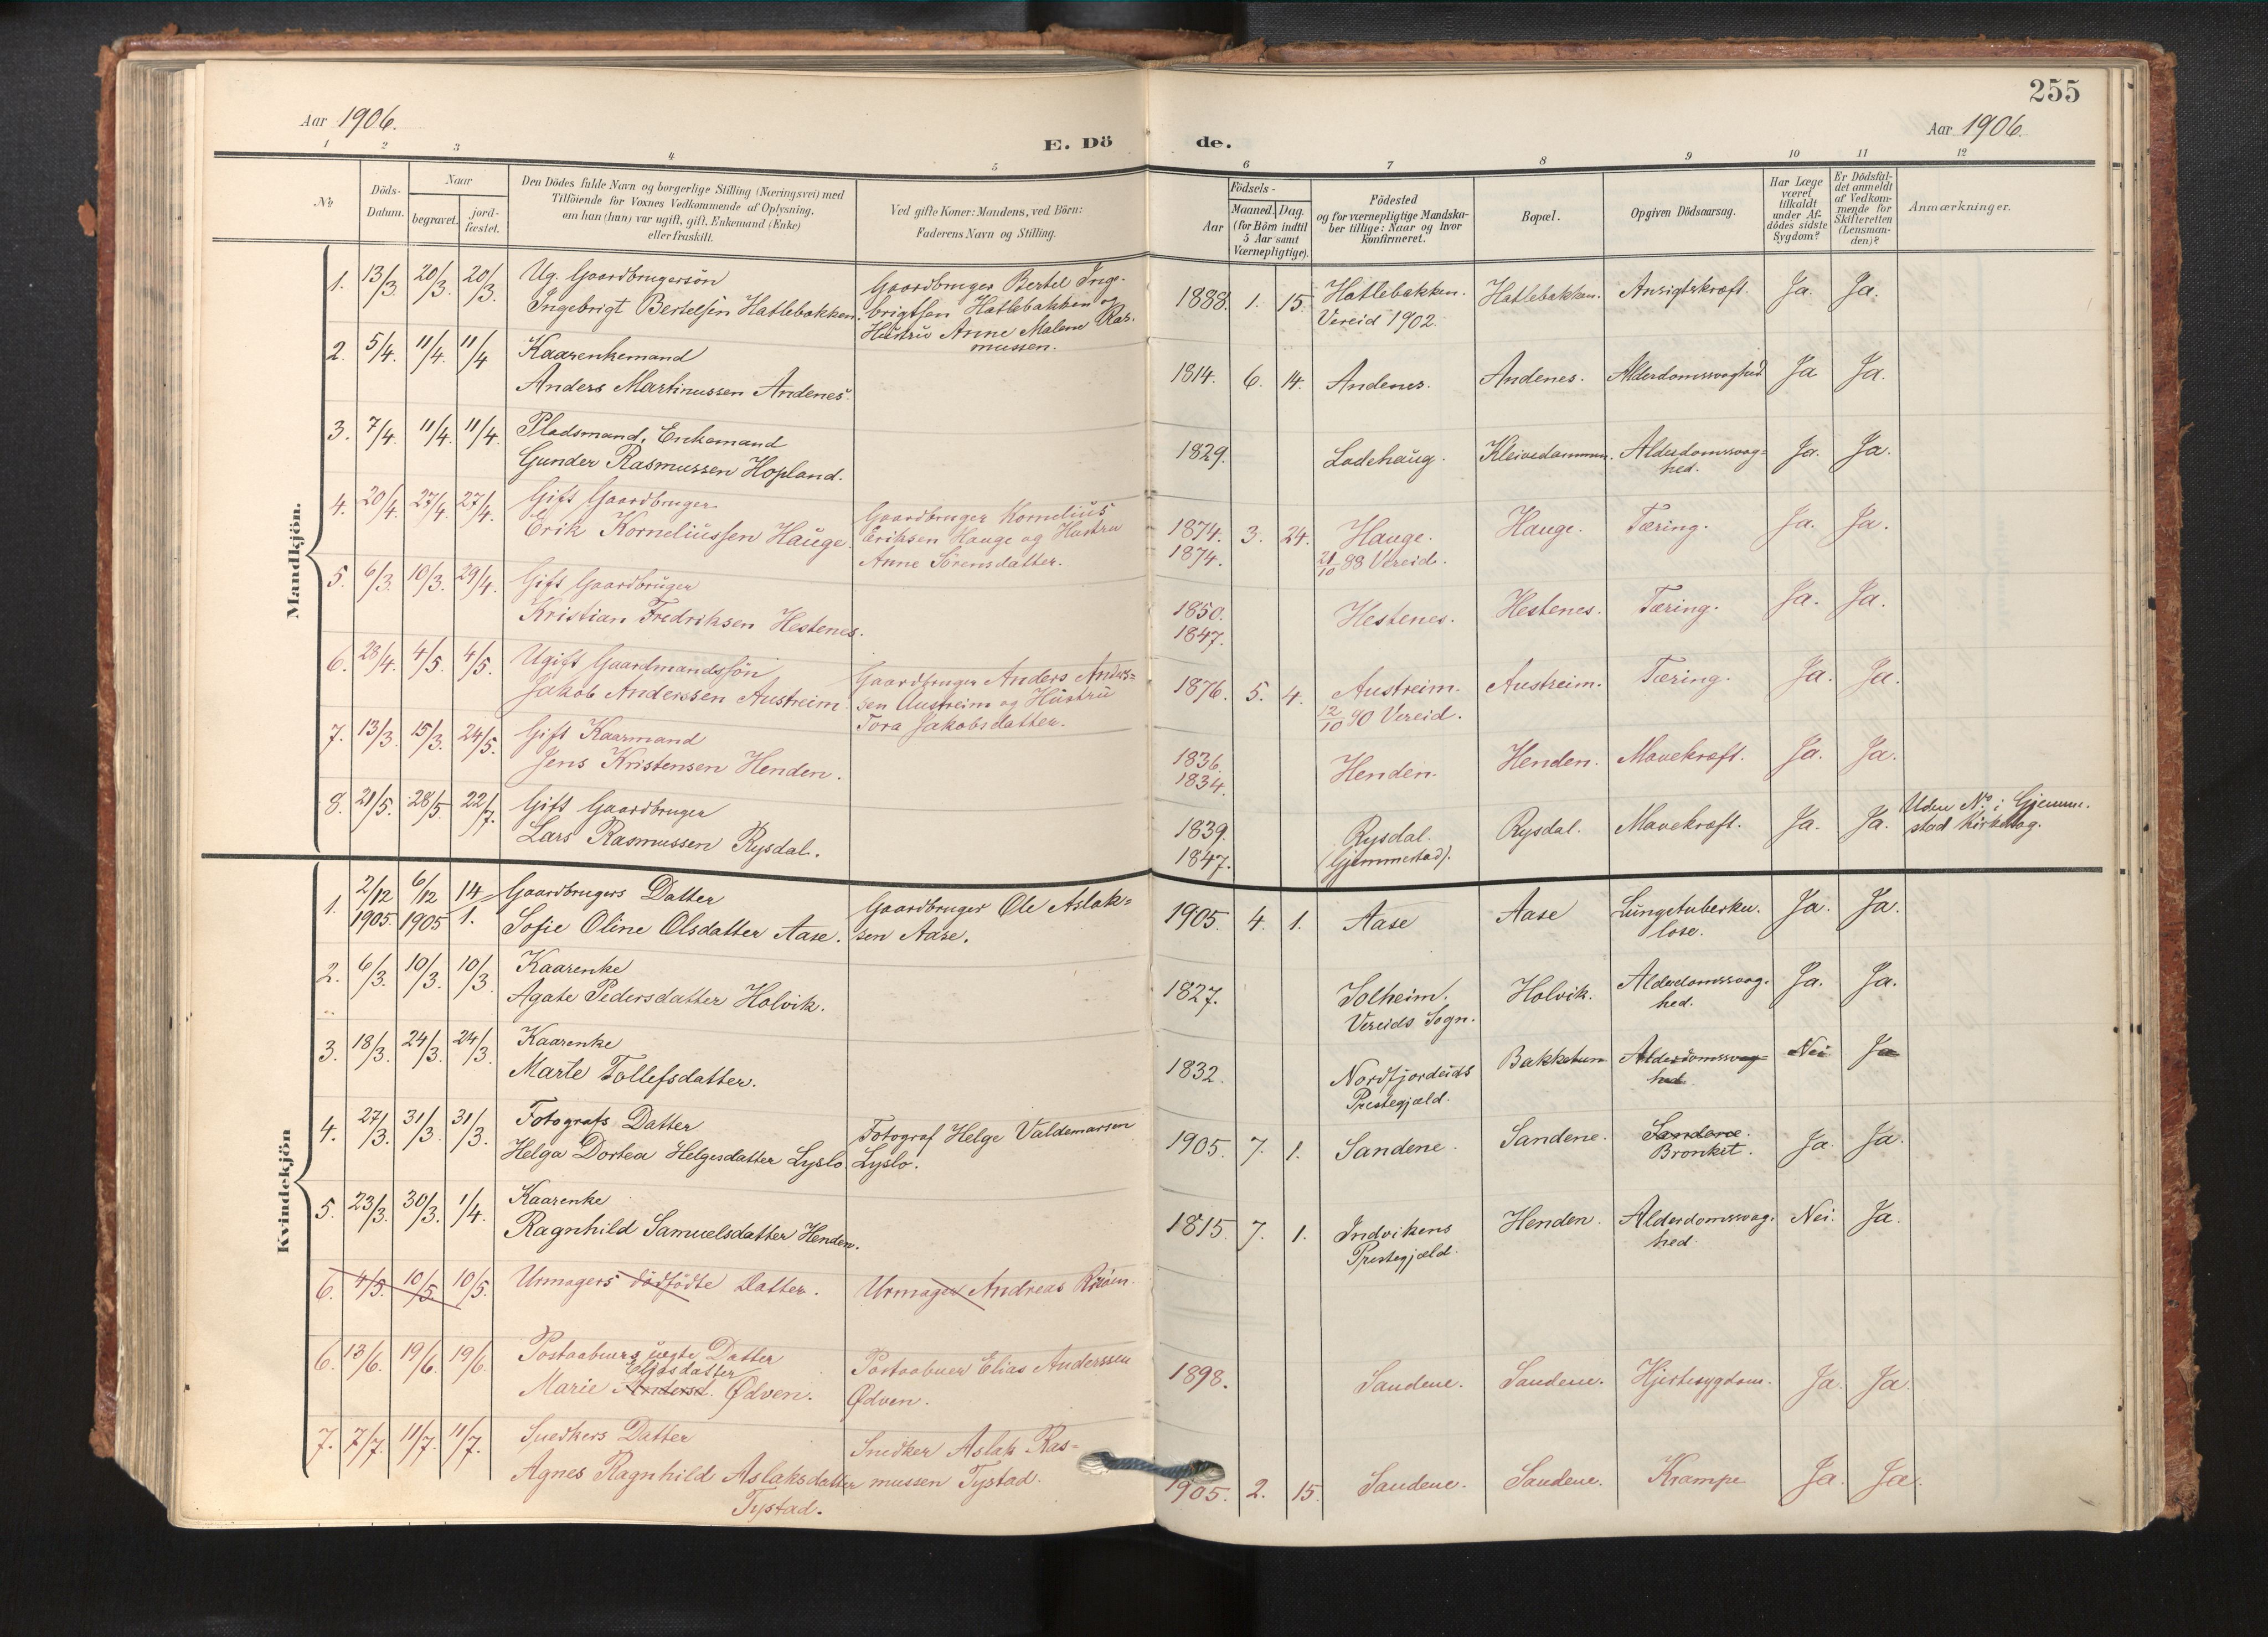 255
Aar 1906.
E. Dö de.
Aar 1906.
1 2 3 4 5 6 7 8 9 10 11 12
No
Döds-
Datum.
Naar
begravet.
jord-
fæstet.
Den Dödes fulde Navn og borgerlige Stilling (Næringsvei) med
Tilföiende for Voxnes Vedkommende af Oplysning,
om han (hun) var ugift, gift, Enkemand (Enke)
eller fraskilt.
Ved gifte Koner: Mandens, ved Börn:
Faderens Navn og Stilling.
Födsels-
Aar
Maaned. Dag.
(for Börn indtil
5 Aar samt
Værnepligtige).
Födested
og for værnepligtige Mandska-
ber tillige: Naar og hvor
konfirmeret.
Bopæl.
Opgiven Dödsaarsag.
Har Læge
været
tilkaldt
under Af-
dödes sidste
Sygdom?
Er Dödsfal-
det anmeldt
af Vedkom-
mende for
Skifteretten
(Lensman-
den)?
Anmærkninger.
Mandkjön.
1. 13/3. 20/3. 20/3. Ug. Gaardbrugersön
Ingebrigt Bertelsen Hatlebakken.
Gaardbruger Bertel Inge-
brigtsen Hatlebakken og
Hustru Anne Malene Ras-
mussen.
1888. 1. 15. Hatlebakken.
Vereid 1902.
Hatlebakken. Ansigtskræft. Ja. Ja.
2. 5/4. 11/4. 11/4 Kaarenkemand
Anders Martinussen Andenes.
1814. 6. 14. Andenes. Andenes. Alderdomssvaghed Ja Ja.
3. 7/4. 11/4. 11/4. Pladsmand, Enkemand
Gunder Rasmussen Hopland.
1829. Ladehaug. Kleivedammen. Alderdomssvag-
hed.
Ja. Ja.
4. 20/4. 27/4. 27/4. Gift Gaardbruger
Erik Korneliussen Hauge.
Gaardbruger Kornelius
Eriksen Hauge og Hustru
Anne Sörensdatter.
1874. 3. 24. Hauge. Hauge. Tæring. Ja. Ja.
1874. 21/10 88 Vereid.
5. 6/3. 10/3. 29/4. Gift Gaardbruger
Kristian Fredriksen Hestenes.
1850. Hestenes. Hestenes. Tæring. Ja. Ja.
1847.
6. 28/4. 4/5. 4/5. Ugift Gaardmandssön
Jakob Anderssen Austreim
Gaardbruger Anders Anders-
sen Austreim og Hustru
Tora Jakobsdatter.
1876. 5. 4. Austreim. Austreim. Tæring. Ja. Ja.
12/10 90 Vereid.
7. 13/3. 15/3. 24/5. Gift Kaarmand
Jens Kristensen Henden.
1836. Henden. Henden. Mavekræft. Ja. Ja.
1834.
8. 21/5. 28/5 22/7. Gift Gaardbruger
Lars Rasmussen Rysdal.
1839. Rysdal. Rysdal. Mavekræft. Ja. Ja.
1847. (Gjemmestad).
Uden No i Gjemme-
stad Kirkebog.
Kvindekjön
1. 2/12 1905 6/12 1905 14/1. Gaardbrugers Datter
Sofie Oline Olsdatter Aase.
Gaardbruger Ole Aslak-
sen Aase.
1905. 4. 1. Aase Aase Lungetuberku-
lose.
Ja. Ja.
2. 6/3. 10/3. 10/3. Kaarenke
Agate Pedersdatter Holvik.
1827. Solheim.
Vereids Sogn.
Holvik. Alderdomssvag-
hed.
Ja. Ja.
3. 18/3. 24/3. 24/3. Kaarenke
Marte Tollefsdatter.
1832. Nordfjordeids
Prestegjæld.
Bakketun Alderdomssvag-
hed.
Nei Ja
4. 27/3. 31/3. 31/3. Fotografs Datter
Helga Dortea Helgesdatter Lyslo.
Fotograf Helge Valdemarsen
Lyslo.
1905. 7. 1. Sandene. Sandene. Sandene.
Bronkit.
Ja. Ja.
5. 23/3. 30/3. 1/4. Kaarenke
Ragnhild Samuelsdatter Henden.
1815 7. 1. Indvikens
Prestegjæld.
Henden. Alderdomssvag-
hed.
Nei. Ja.
6. 4/5. 10/5 10/5. Urmagers dödfödte Datter.
Urmager Andreas
6. 13/6. 19/6. 19/6. Postaabners uegte Datter
Eliasdatter
Marie Andersd. Ødven.
Postaabner Elias Anderssen
Ødven.
1898. Sandene. Sandene. Hjertesygdom. Ja. Ja.
7. 7/7. 11/7. 11/7. Snedkers Datter
Agnes Ragnhild Aslaksdatter
Tystad.
Snedker Aslak Ras-
mussen Tystad.
1905. 2. 15. Sandene. Sandene. Krampe Ja. Ja.